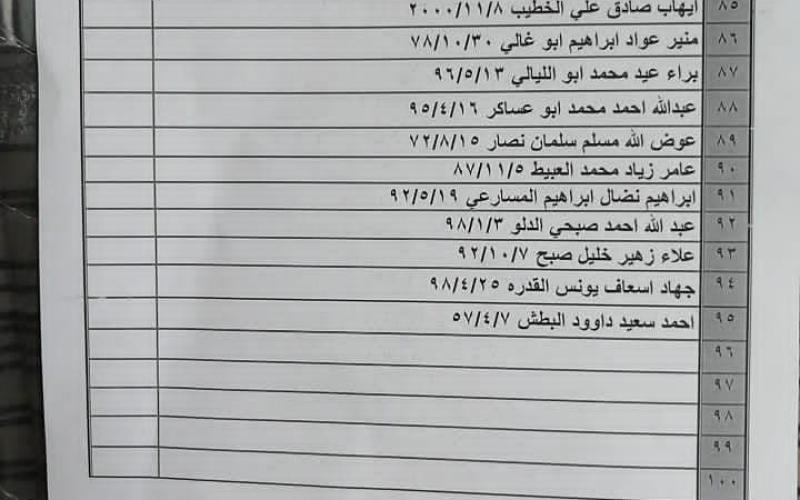 ٨٥ ايهاب صادق علي الخطيب ٢٠٠٠/١١/٨
٨٦ منير عواد ابراهيم ابو غالي ٧٨/١٠/٣٠
٨٧ براء عيد محمد ابو الليالي ٩٦/٥/١٣
٨٨ عبدالله احمد محمد ابو عساكر ٩٥/٤/١٦
٨٩ عوض الله مسلم سلمان نصار ٧٢/٨/١٥
٩٠ عامر زياد محمد العبيط ٨٧/١١/٥
٩١ ابراهيم نضال ابراهيم المسارعي ٩٢/٥/١٩
٩٢ عبد الله احمد صبحي الدلو ٩٨/١/٣
٩٣ علاء زهير خليل صبح ٩٢/١٠/٧
٩٤ جهاد اسعاف يونس القدره ٩٨/٤/٢٥
٩٥ احمد سعيد داوود البطش ٥٧/٤/٧
٩٦
٩٧
٩٨
٩٩
١٠٠